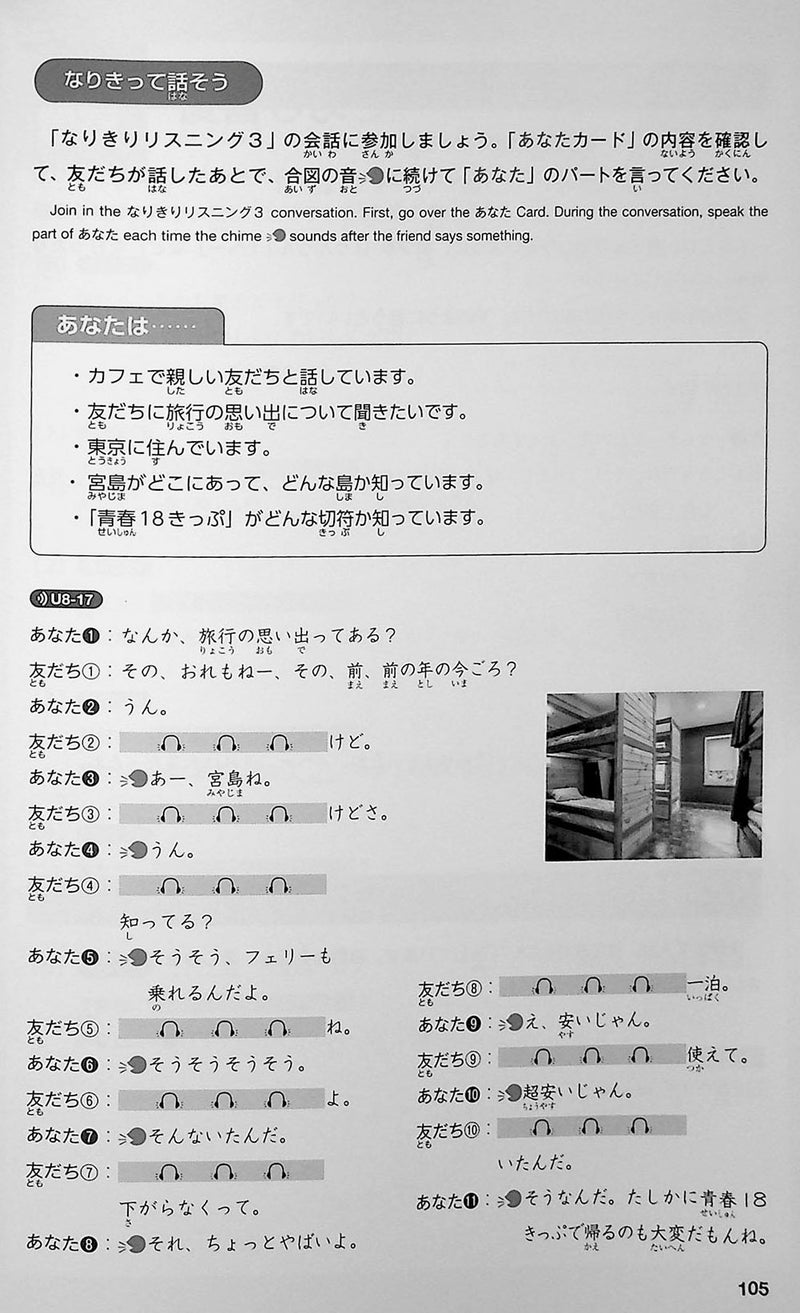 なりきって話そう
はな
「なりきりリスニング3」の会話に参加しましょう。「あなたカード」の内容を確認し
かいわ さんか ないよう かくにん
て、友だちが話したあとで、合図の音に続けて「あなた」のパートを言ってください。
とも はな あいず おと つづ い
Join in the なりきりリスニング3 conversation. First, go over the あなた Card. During the conversation, speak the
part of あなた each time the chime sounds after the friend says something.
あなたは……
・カフェで親しい友だちと話しています。
した とも はな
・友だちに旅行の思い出について聞きたいです。
とも りょこう おも で き
・東京に住んでいます。
とうきょう す
・宮島がどこにあって、どんな島か知っています。
みやじま しま し
・「青春18きっぷ」がどんな切符か知っています。
せいしゅん きっぷ し
U8-17
あなた❶：なんか、旅行の思い出ってある？
りょこう おも で
友だち①：その、おれもねー、その、前、前の年の今ごろ？
とも まえ まえ とし いま
あなた❷：うん。
友だち②： けど。
とも
あなた❸：あー、宮島ね。
みやじま
友だち③： けどさ。
とも
あなた❹：うん。
友だち④：
とも
知ってる？
し
あなた❺：そうそう、フェリーも
乗れるんだよ。
の
友だち⑤： ね。
とも
あなた❻：そうそうそうそう。
友だち⑥： よ。
とも
あなた❼：そんないたんだ。
友だち⑦：
とも
下がらなくって。
さ
あなた❽：それ、ちょっとやばいよ。
友だち⑧： 一泊。
とも いっぱく
あなた❾：え、安いじゃん。
やす
友だち⑨： 使えて。
とも つか
あなた❿：超安いじゃん。
ちょうやす
友だち⑩：
とも
いたんだ。
あなた⓫：そうなんだ。たしかに青春18
せいしゅん
きっぷで帰るのも大変だもんね。
かえ たいへん
105